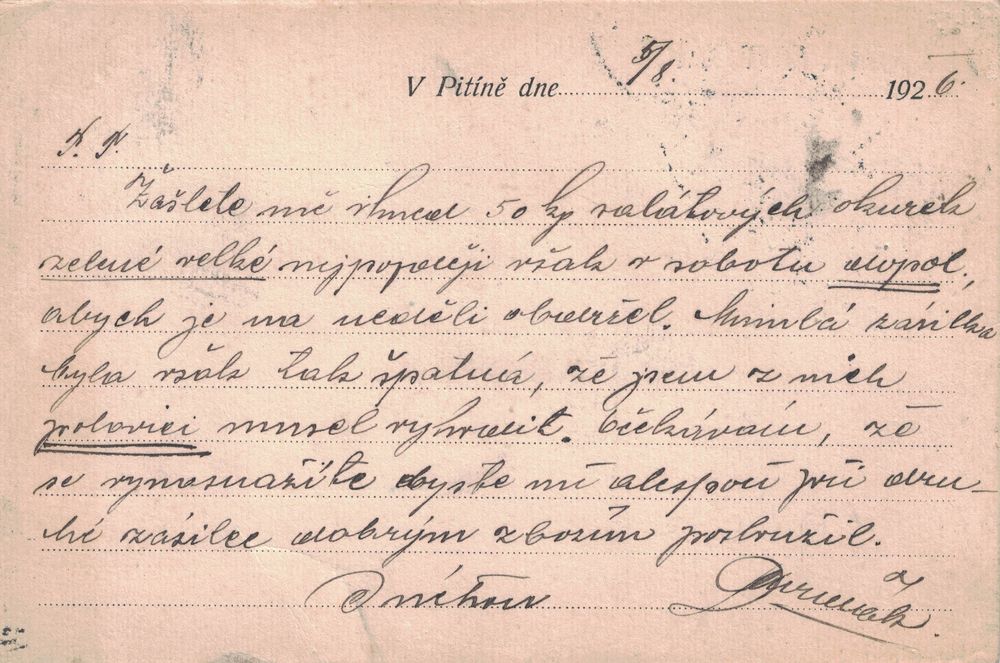 V Pitíně dne 5/8. 1926.
P. P.
Zašlete mě ihned 50 kg salátových okurek
zelené velké nejpozději však v sobotu dopol.,
abych je na neděli obdržel. Minulá zásilka
byla však tak špatná, že jsem z nich
polovici musel vyhodit. Očekávám, že
se vynasnažíte abyste mě alespoň při dru-
hé zásilce dobrým zbožím posloužil.
S úctou